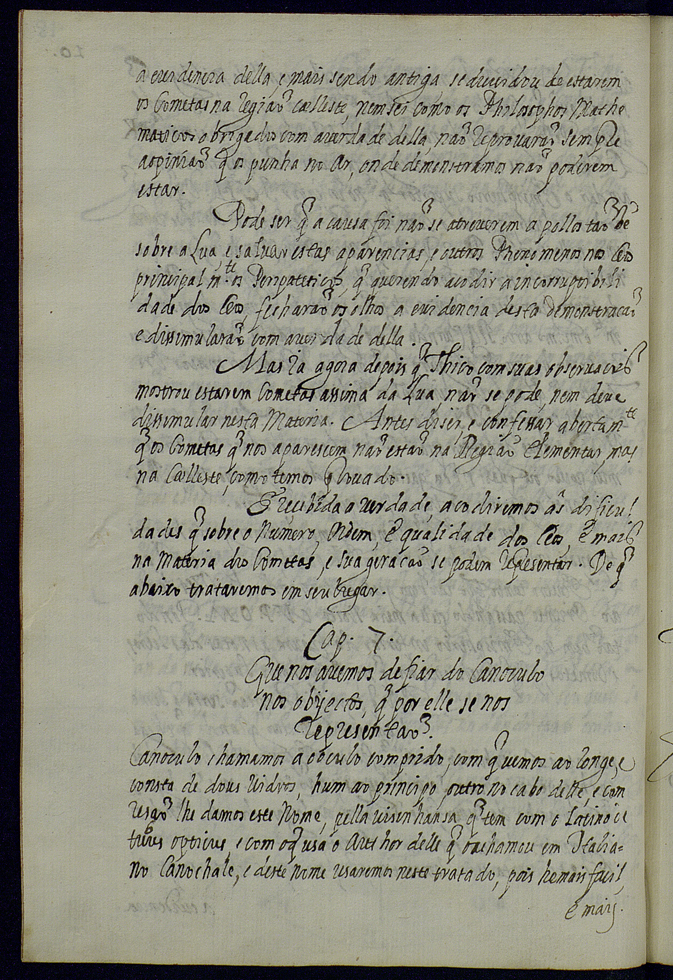 a euidencia della, e mais sendo antiga se duuidou de estarem
os Cometas na região cælleste, nem sei como os Philosophos Mathe
maticos obrigados com a uerdade della, não reprouarão sempre
a opinião q̃ os punha no Ar, onde demonstramos não poderem
estar.
Pode ser q̃ a causa foi não se atreuerem a pollos tão
sobre a Lua, e saluar estas aparencias, e outros Phenomenos nos Ceos
principalm.te os Peripateticos, q̃ querendo acodir a incorruptibili
dade dos Ceos, fecharão os olhos a euidencia desta demonstracão
e dissimularão com a uerdade della.
Mas ia agora depois q̃ Thico com suas obseruacois
mostrou estarem Cometas assima da Lua não se pode, nem deue
dissimular nesta Materia. Antes diser, e confessar abertam.te
q̃ os Cometas q̃ nos aparescem não estão na Região Elementar mas
na Cælleste, como temos Prouado.
E recebida a uerdade, acodiremos ás dificul
dades q̃ sobre o Numero, Ordem, e qualidade dos Ceos, e mais
na Materia dos Cometas, e sua geracão se podem representar. De q̃
abaixo trataremos em seu lugar.
Cap. 7.
Que nos auemos de fiar do Canoculo
nos obiectos, q̃ por elle se nos
representão.
Canoculo chamamos a oóculo comprido, com q̃ uemos ao longe, e
consta de dous Vidros, hum ao principo, outro no cabo delle, e com
resão lhe damos este Nome, pella uisenhansa q̃ tem com o Latino
opticus e com o q̃ usa o Author delle q̃ o chamou em Italia=
no Canochale, e deste nome usaremos neste tratado, pois he mais facil,
e mais.